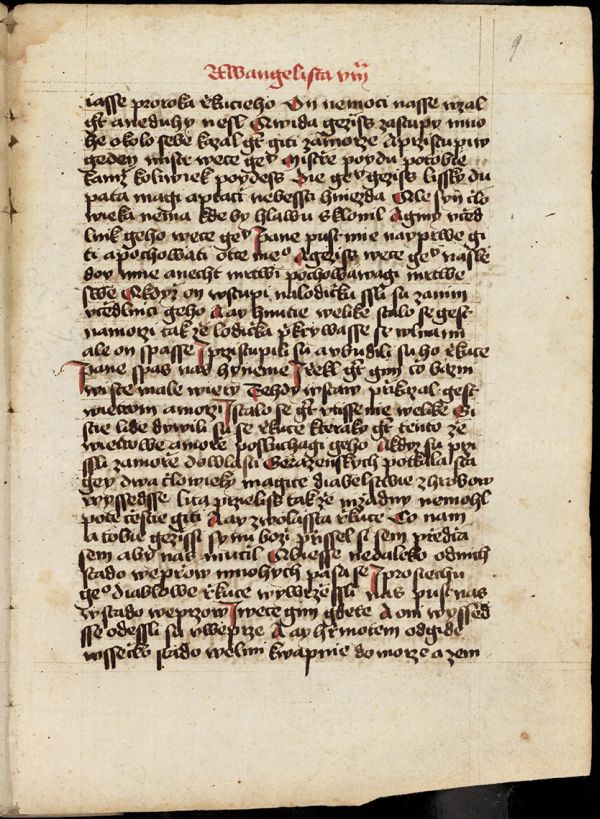 9
Ewangelista viii
iasse proroka řkucieho On nemoci nasse wzal
gt̃ a neduhy nesl Uwida gežiss zastupy mno
he okolo sebe kazal gt̃ giti za morze A przistupiw
geden mistr wece gẽ Mistře poydu po tobie
kamž koliwiek poydess Die gẽ geziss lissky du
pata magi a ptaci nebessti hniezda Ale syn člo
wieka nema kde by hlawu sklonil A giny včed
lnik geho wece gẽ Pane pust mie nayprwe gi
ti a pochowati otce meº A geziss wece gẽ nasle
doy mne a necht mrtwi pochowawagi mrtwe
swe A kdyz on wstupi na lodičku ssli su za nim
včedlnici geho A ay hnutie welike stalo se gest
na morzi tak že lodička přikrywasse se wlnami
ale on spasse I přistupili su a vbudili su ho řkuce
Pane spas nas hyneme I řekl gt̃ gim co bazni
wi ste male wiery Tehdy wstaw přikazal gest
wietrom a morzi I stalo se gt̃ vtissenie welike Gi
stie lide dywili su se řkuce kteraky gt̃ tento že
wietrowe a moře posluchagi geho A kdyz su pri
ssli za moře do wlasti Gerazenskych potkala sta
gey dwa člowieky magice diabelstwie z hrobow
wyssedsse lita przieliss tak že nizadny nemohl
pote cestie giti A ay zwolassta řkuce Co nam
a tobie gezissi synu bozi přissel si sem předta
sem aby nas mutil A biesse nedaleko od nich
stado weprzow mnohych pasa se I prosiechu
geº diablowe řkuce wywržessli nas pust nas
w stado weprzow I wece gim gdete A oni wyssed
sse odessli su w weprze A ay hřmotem odgide
wssecko stado welmi kwapnie do morze a zem